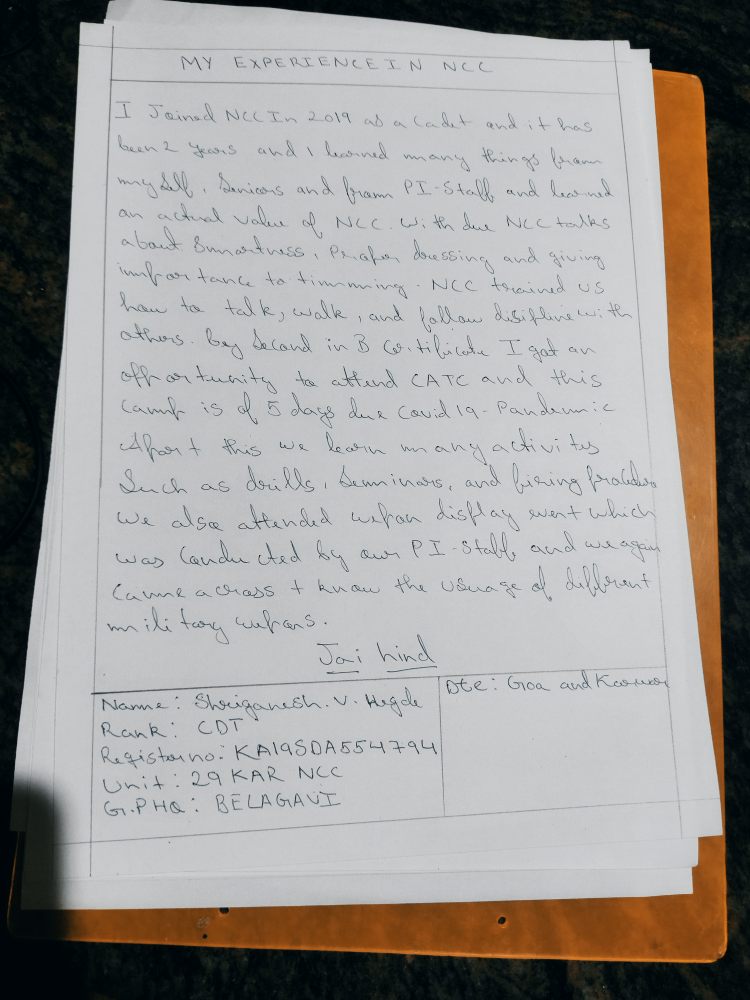 MY EXPERIENCE IN NCC
I Joined NCC In 2019 as a Cadet and it has
been 2 years and I learned many things from
myself, Seniors and from PI-Staff and learned
an actual value of NCC. With due NCC talks
about Smartness, Proper dressing and giving
importance to timming. NCC trained us
how to talk, walk, and follow disipline with
others. Being Second in B Certificate I got an
opportunity to attend CATC and this
Camp is of 5 days due Covid 19-Pandemic
Apart this we learn many activitys
Such as drills, Seminars, and firing procedure
We also attended wepon display event which
was Conducted by our PI-Staff and we again
Came across t know the usuage of different
military wepons.
Jai hind
Name: Shriganesh. V. Hegde
Rank: CDT
Register no: KA19SDA554794
Unit: 29 KAR NCC
G.PHQ: BELAGAVI
Dte: Goa and Karwar